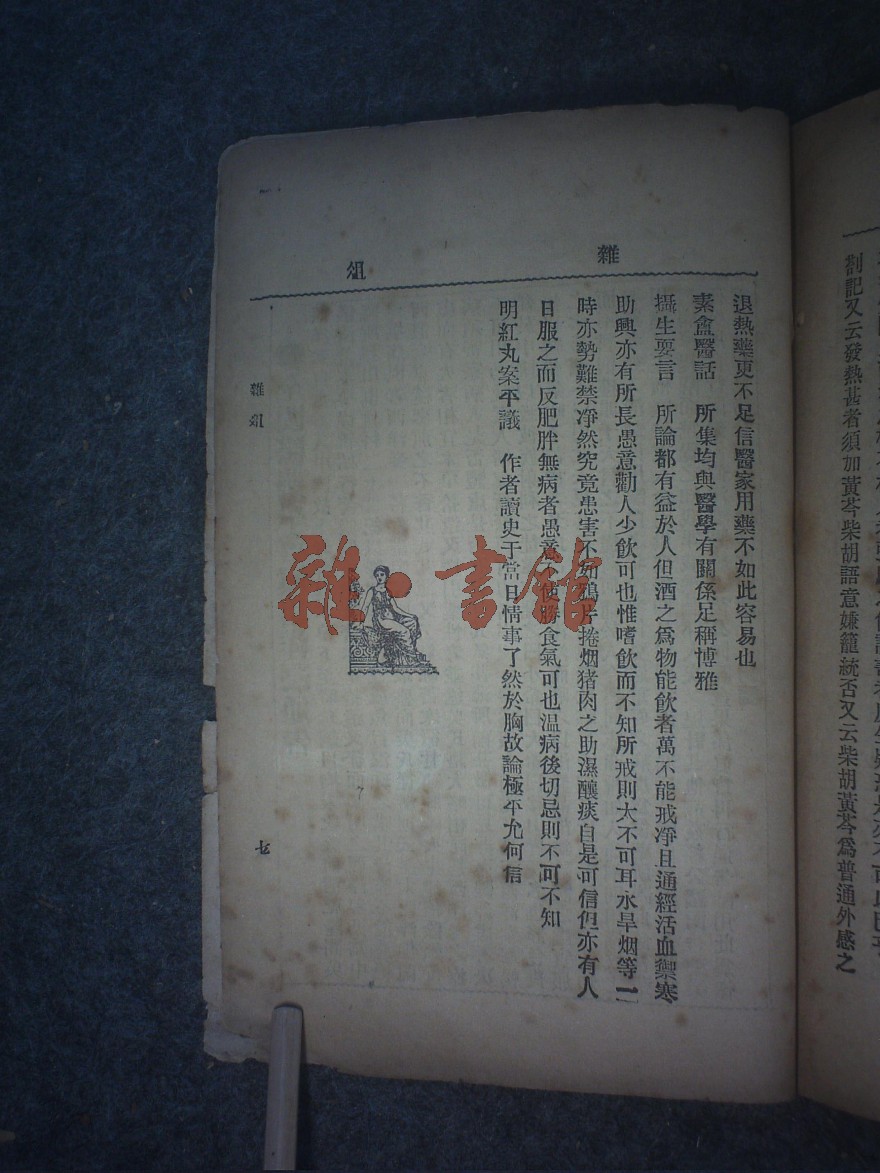 劄記又云發熱甚者須加黃芩柴胡語意嫌籠統否又云柴胡黃芩爲普通外感之
雜俎
退熱藥更不足信醫家用藥不如此容易也
素盦醫話　所集均與醫學有關係足稱博雅
攝生要言　所論都有益於人但酒之爲物能飮者萬不能戒淨且通經活血禦寒
助興亦有所長愚意勸人少飮可也惟嗜飮而不知所戒則太不可耳水旱烟等一
時亦勢難禁凈然究竟患害不如鴉片捲烟猪肉之助濕釀痰自是可信但亦有人
日服之而反肥胖無病者愚意不使勝食氣可也温病後切忌則不可不知
明紅丸案平議　作者讀史于當日情事了然於胸故論極平允何信
雜俎
雜·書館